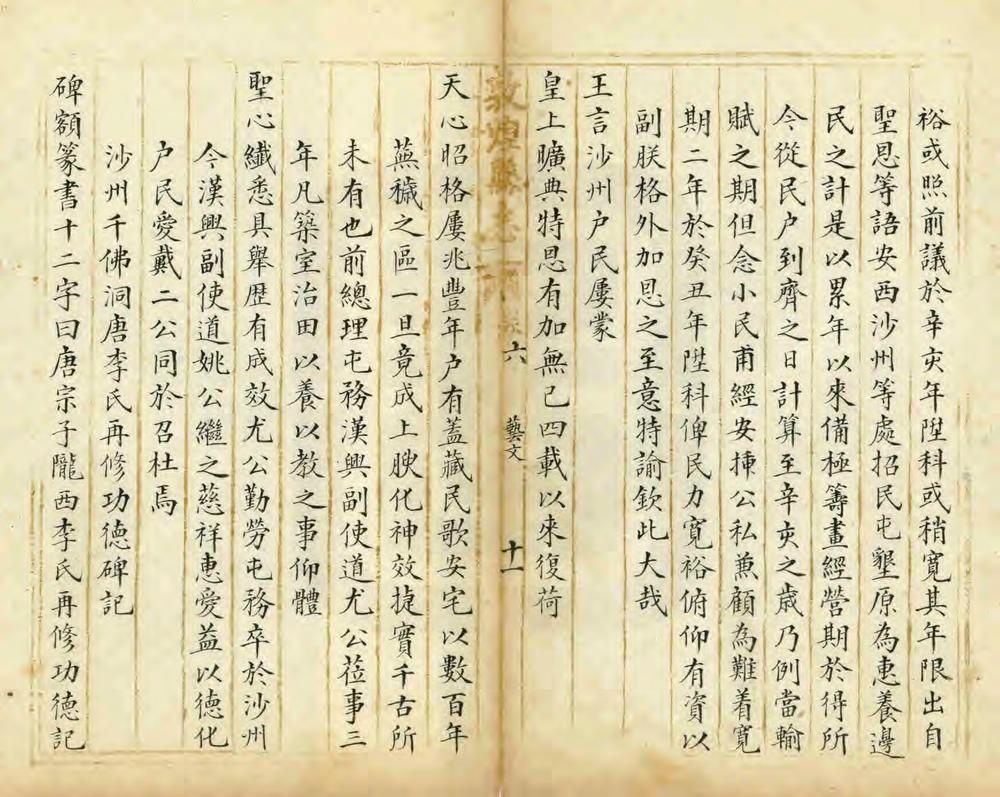 裕或照前議於辛亥年陞科或稍寬其年限出自
聖恩等語安西沙州等處招民屯墾原為惠養邊
民之計是以累年以來備極籌畫經營期於得所
今從民户到齊之日計算至辛亥之歲乃例當輸
賦之期但念小民甫經安插公私兼顧為難着寬
期二年於癸丑年陞科俾民力寬裕俯仰有資以
副朕格外加恩之至意特諭欽此大哉
王言沙州户民屢蒙
皇上曠典特恩有加無已四載以來復荷
敦煌縣志
卷六
藝文
十一
天心昭格屢兆豐年户有蓋藏民歌安宅以數百年
蕪穢之區一旦竟成上腴化神效捷實千古所
未有也前總理屯務漢興副使道尤公莅事三
年凡築室治田以養以教之事仰體
聖心纖悉具舉歴有成效尤公勤勞屯務卒於沙州
今漢興副使道姚公繼之慈祥惠愛益以德化
户民愛戴二公同於召杜焉
沙州千佛洞唐李氏再修功德碑記
碑額篆書十二字曰唐宗子隴西李氏再修功德記